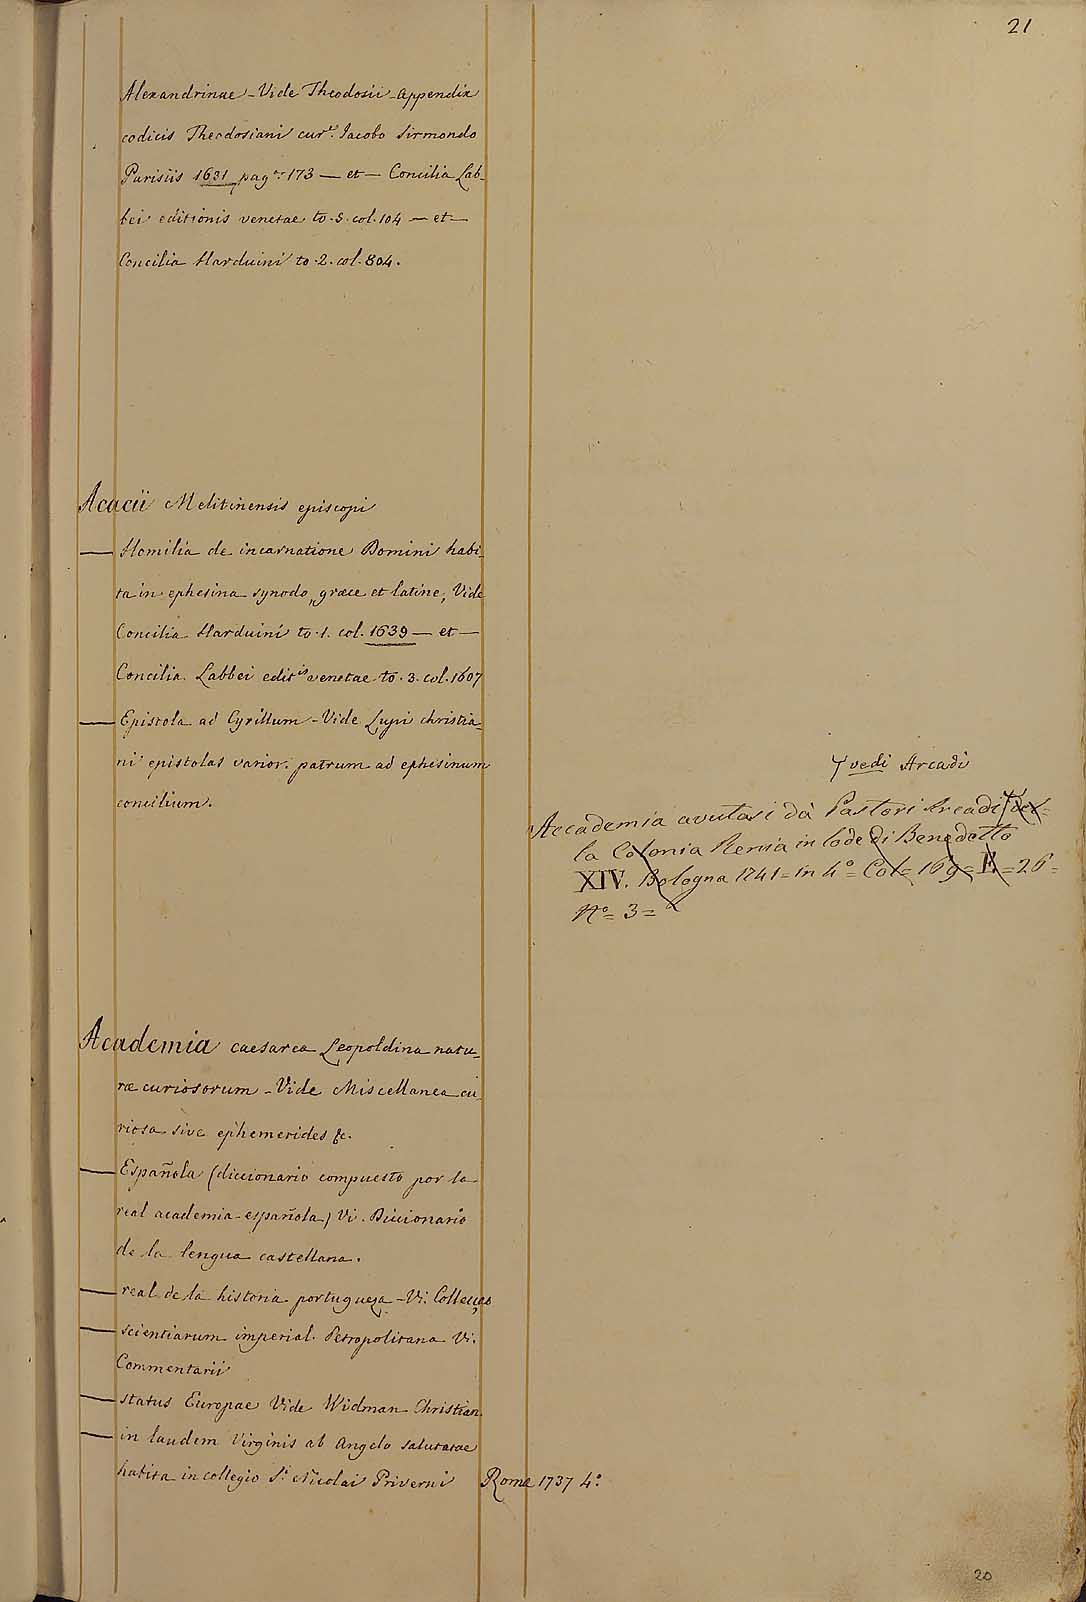 21
Alexandrinae - Vide Theodosii - appendix
codicis Theodosiani cur.te Jacobo Sirmondo
Parisiis 1631 pag.a 173 — et — Concilia Lab-
bei editionis venetae to. 5. col. 104 — et —
Concilia Harduini to. 2. col. 804.
Acacii Melitinensis episcopi
— Homilia de incarnatione Domini habi-
ta in ephesina synodo, græce et latine, Vide
Concilia Harduini to. 1. col. 1639 — et —
Concilia Labbei edit.is venetae to. 3. col. 1607
— Epistola ad Cyrillum - Vide Lupi christia-
ni epistolas varior. patrum ad ephesinum
concilium.
vedi Arcadi
Accademia avutasi dà Pastori Arcadi del-
la Colonia Renia in lode di Benedetto
XIV. Bologna 1741 = in 4.o = Col = 169 = F. = 26 =
N.o = 3 =
Academia caesarea Leopoldina natu-
ræ curiosorum - Vide Miscellanea cu-
riosa sive ephemerides &c.
— Española (diccionario compuesto por la
real academia española) Vi. Diccionario
de la lengua castellana.
— real de la historia portugueza - Vi. Colleçao
— scientiarum imperial. Petropolitana Vi.
Commentarii
— status Europae Vide Widman Christian.
— in laudem Virginis ab Angelo salutatae
habita in collegio S.i Nicolai Priverni Rome 1737 4.o
20